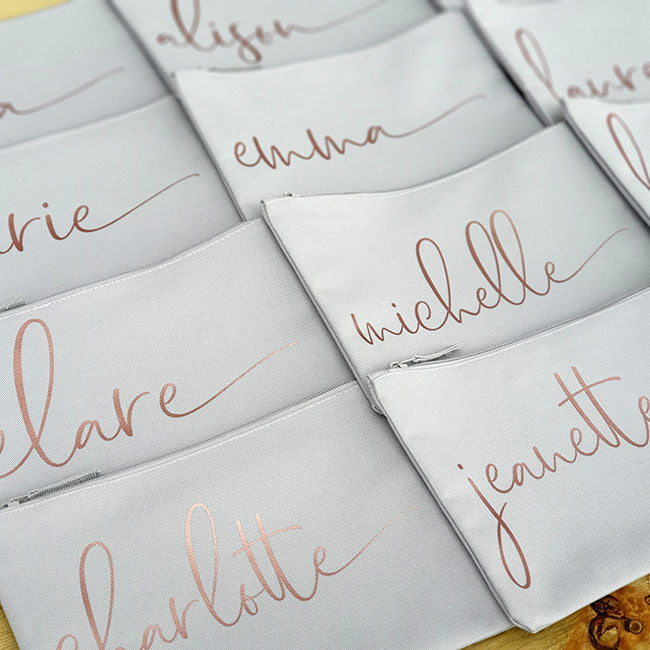 alison
emma
michelle
clare
jeanette
charlotte